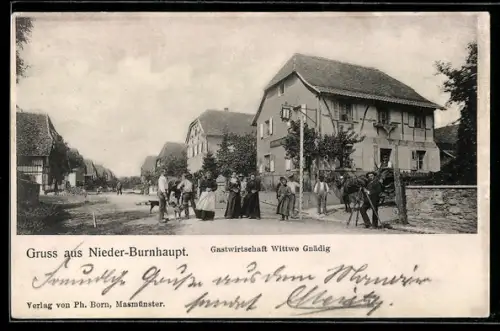 Gruss aus Nieder-Burnhaupt. Gastwirtschaft Wittwe Gnädig
Grüße aus dem
sendet
Verlag von Ph. Born, Masmünster.